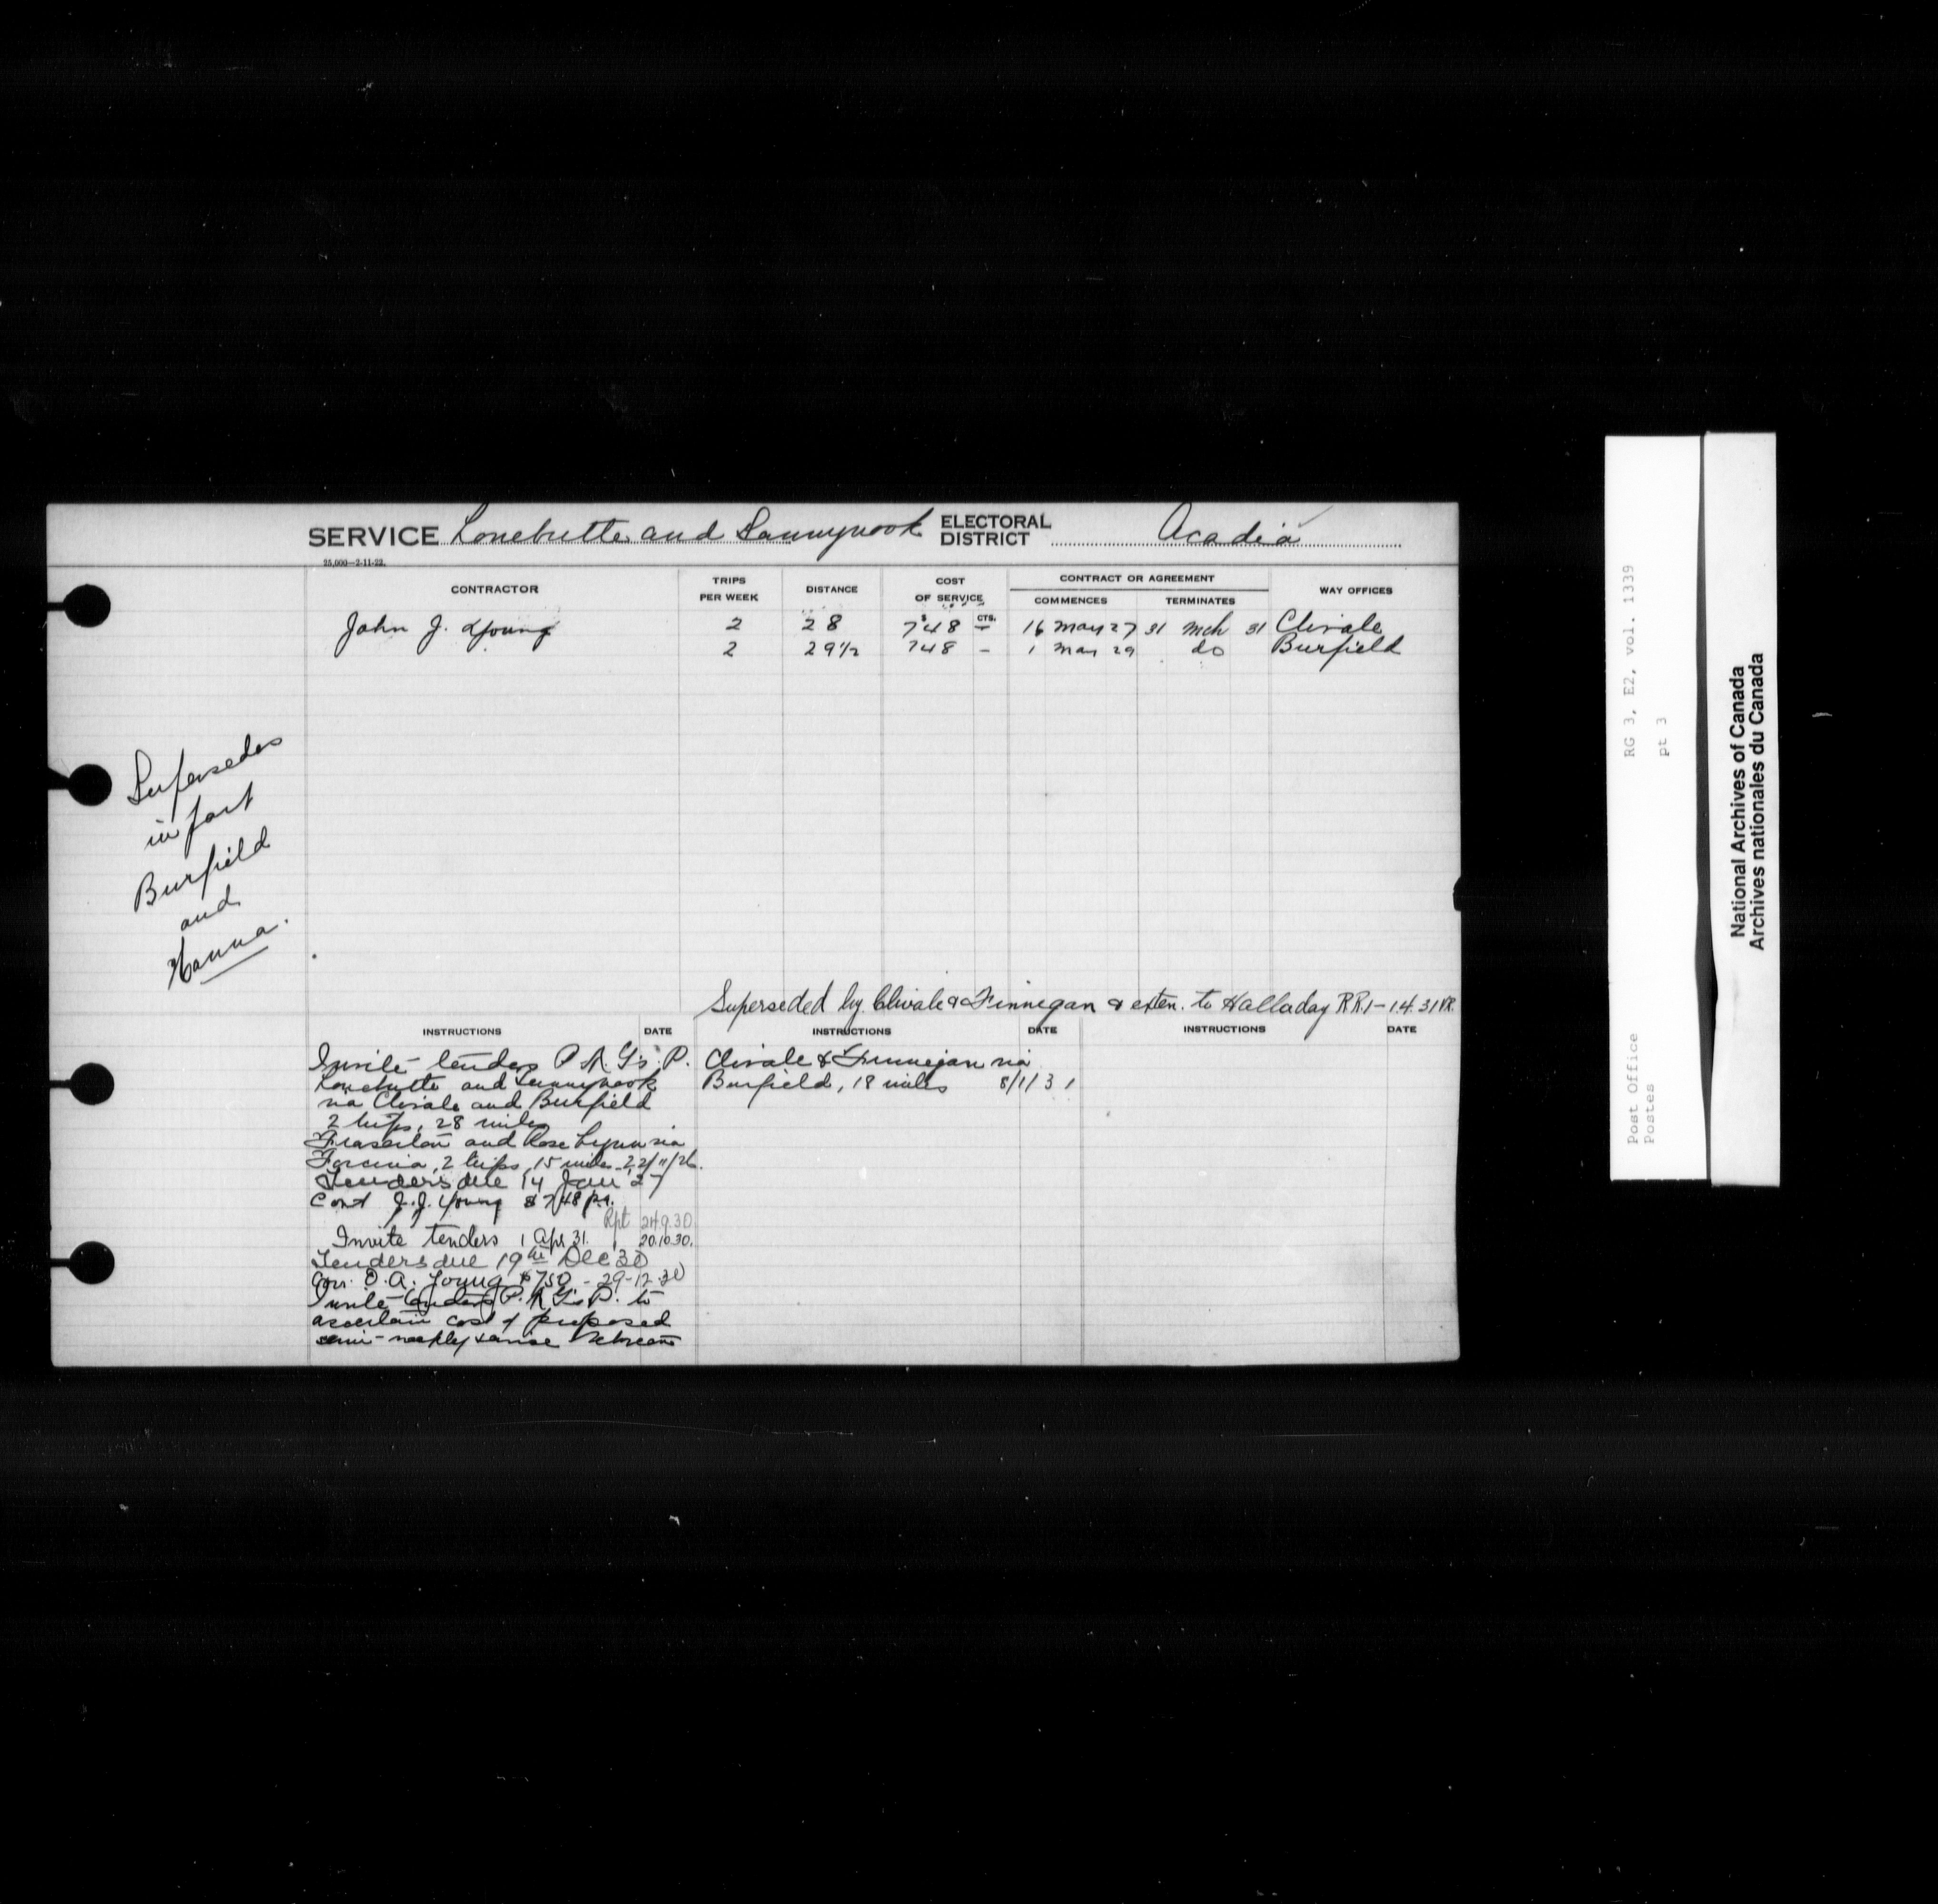 SERVICE Lonebutte and Sunnynook ELECTORAL DISTRICT Acadia
25,000—2-11-22.
CONTRACTOR TRIPS PER WEEK DISTANCE COST OF SERVICE CONTRACT OR AGREEMENT COMMENCES TERMINATES WAY OFFICES
$ CTS.
John J. Young 2 28 748 – 16 May 27 31 Mch 31 Clivale
2 29 1/2 748 – 1 May 29 do Burfield
Supersedes
in part
Burfield
and
Hanna.
Superseded by Clivale & Finnegan & exten. to Halladay RR1 – 1.4.31
INSTRUCTIONS DATE INSTRUCTIONS DATE INSTRUCTIONS DATE
Invite tenders P.
Lonebutte and Sunnynook
via Clivale and Burfield
2 trips, 28 miles
Fraserton and Rose Lynn via
Forcina, 2 trips, 15 miles 22/11/26.
Tenders due 14 Jan '27
Cont J.J. Young $748 p.a.
Rpt 24.9.30
Invite tenders 1 Apr 31. 20.10.30.
Tenders due 19th Dec 30
O.A. Young $750 - 29-12-30
Invite tenders P. to
ascertain cost of proposed
semi-weekly service between
Clivale & Finnegan via
Burfield, 18 miles 8/1/31
RG 3, E2, vol. 1339
pt 3
Post Office
Postes
National Archives of Canada
Archives nationales du Canada